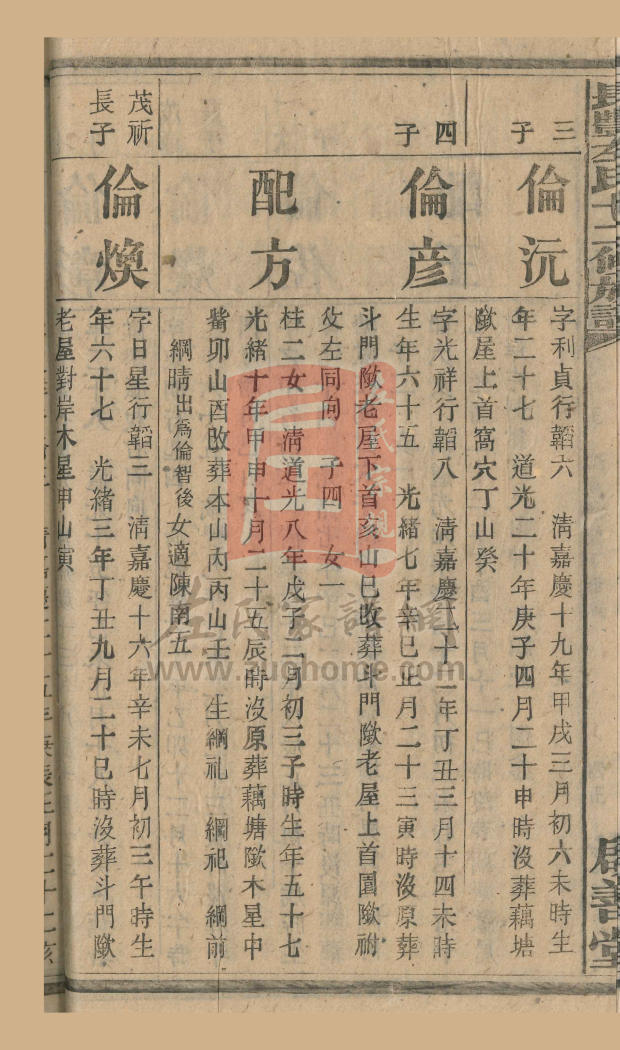 長豐左氏十二修族譜
啟善堂
三子
倫沅
字利貞行韜六 淸嘉慶十九年甲戌三月初六未時生
年二十七 道光二十年庚子四月二十申時沒葬藕塘
歟屋上首窩穴丁山癸
四子
倫彦
字光祥行韜八 淸嘉慶二十二年丁丑三月十四未時
生年六十五 光緒七年辛巳正月二十三寅時沒原葬
斗門歟老屋下首亥山巳改葬斗門歟老屋上首園歟祔
父左同向 子四 女一
配方
桂二女 淸道光八年戊子二月初三子時生年五十七
光緒十年甲申十月二十五辰時沒原葬藕塘歟木星中
觜卯山酉改葬本山丙丙山壬 生綱礼 綱祀 綱前
綱晴出爲倫智後 女適陳南五
茂祈長子
倫煥
字日星行韜三 淸嘉慶十六年辛未七月初三午時生
年六十七 光緒三年丁丑九月二十巳時沒葬斗門歟
老屋對岸木星申山寅
左氏家譜網
www.zuohome.com